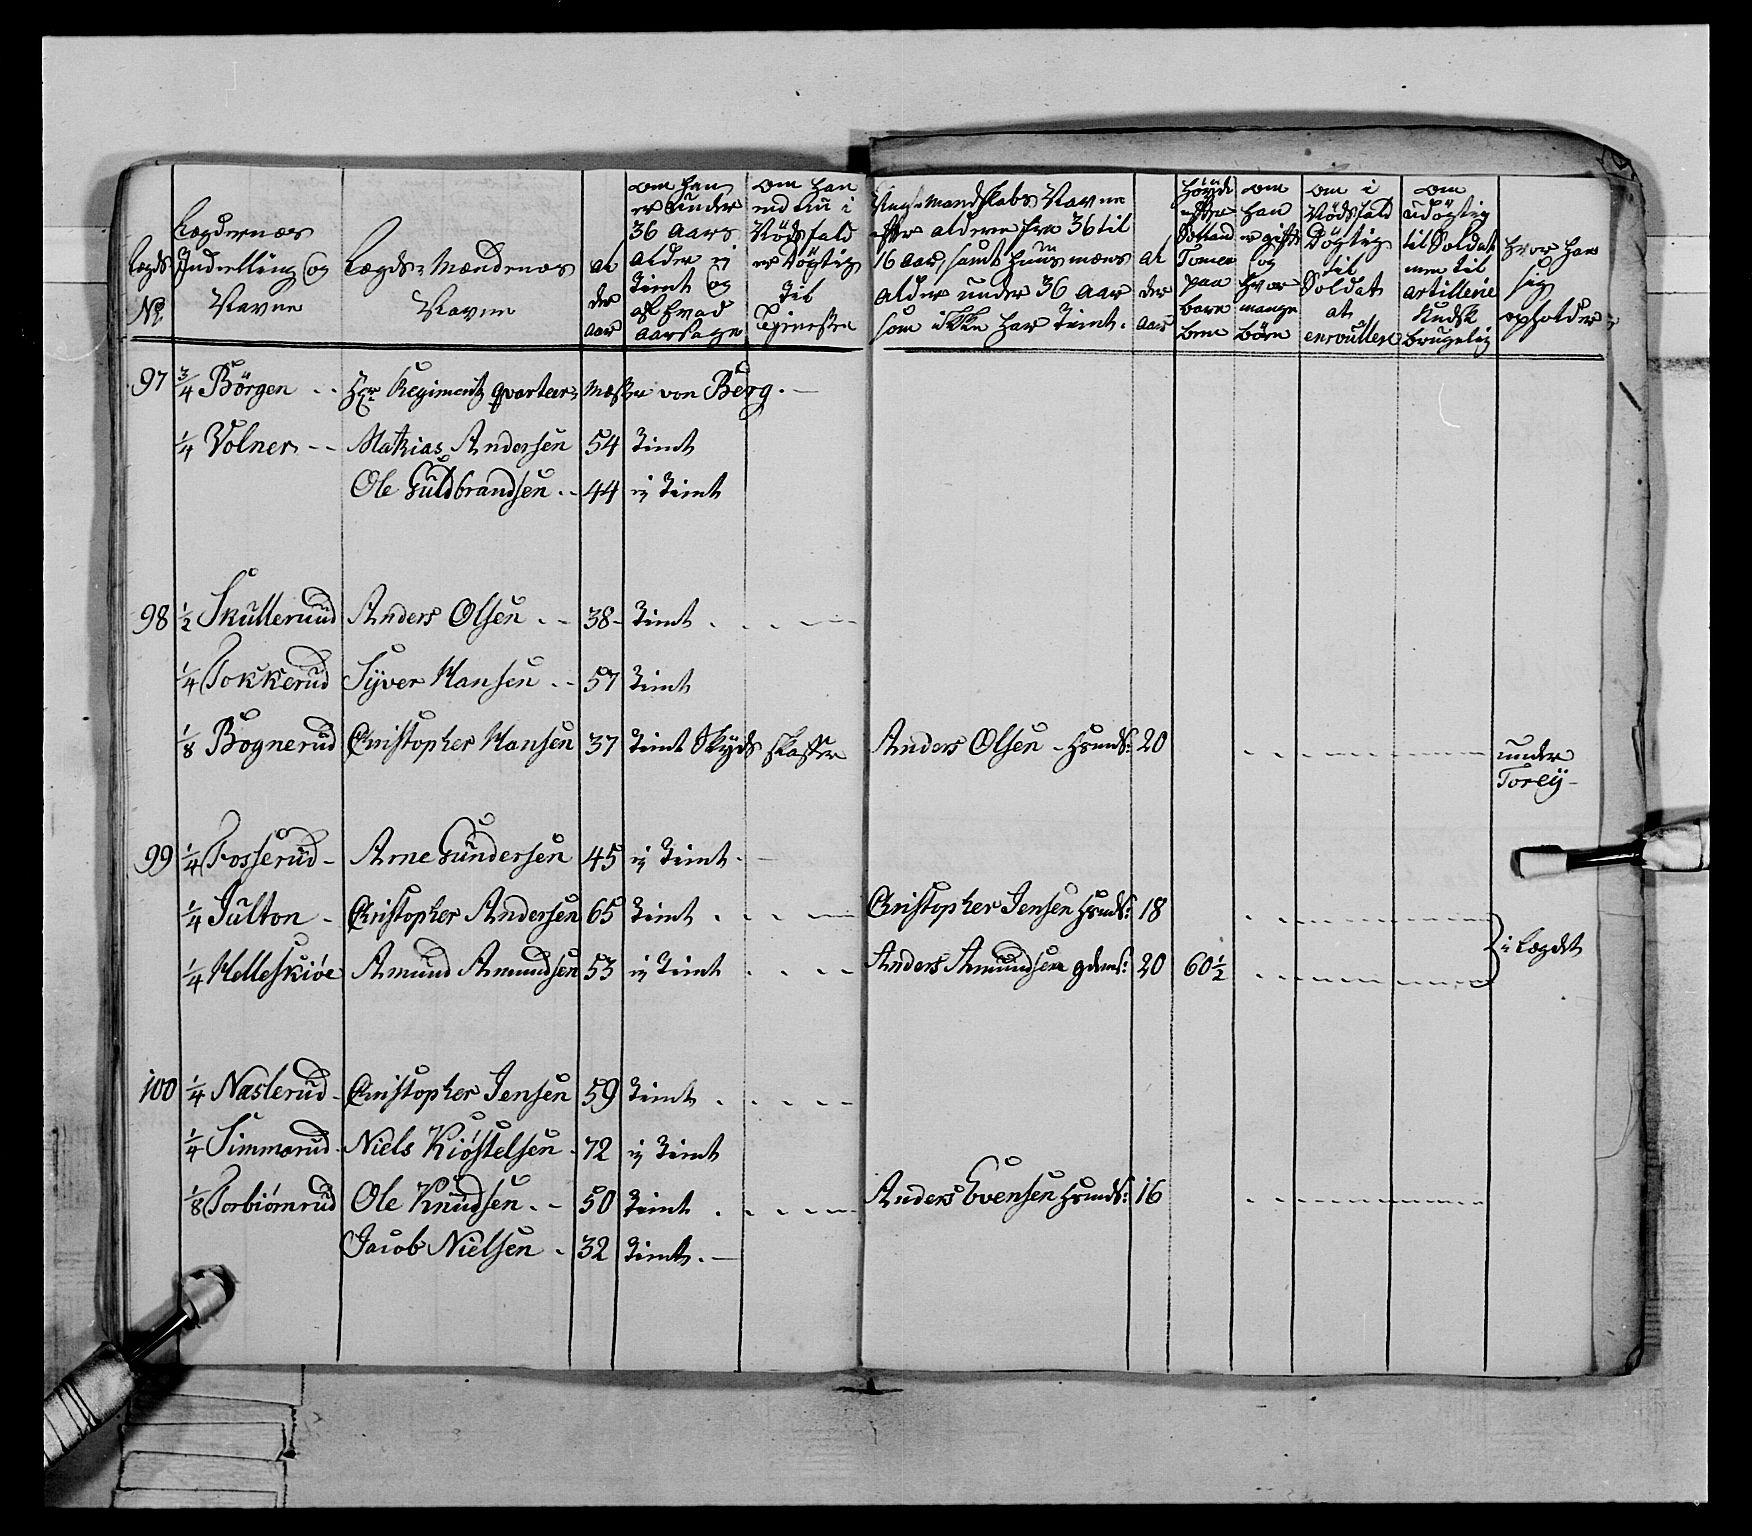 Lægds No
Lægdernæs Inddelling og Navne
Lægds-Mændenes Navne
al der aar
om han er under 36 aars alder ej Tient og af hvad aarsage
om han end nu i Nödsfald er Dögtig til Tienesten
Unge Mandskabs Navne efter alderne fra 36 til 16 aar, samt huusmæns alder under 36 aar som ikke har Tient.
al der aar
höyde efter Solland Tomer paa bare bene
om han er gift og hvor mange börn
om i Nödsfald Dögtig til Soldat at enroullere
om udögtig til Soldat men til artillerie kudsk brugelig
hvor han sig opholder
97 3/4 Börgen - - Hr Regimentz qvarteer-Mester von Berg. -
1/4 Volner - - Mathias Andersen 54 Tient
Ole Guldbrandsen . - 44 ej Tient
98 1/2 Skullerud Anders Olsen . - 38 - Tient . - - - -
1/4 Tokkerud Syver Hansen . - 57 Tient
1/8 Bognerud Christopher Hansen 37 Tient Skyds skaffer Anders Olsen - Husmds: 20 under
Torey -
99 1/4 Fosserud - Arne Gundersen 45 ej Tient . -
1/4 Julton - Christopher Andersen 65 Tient . - - - Christopher Jensen Husmds: 18
1/4 Helleskiøe Amund Amundsen 53 ej Tient . - - - Anders Amundsen gdms: 20 60 1/2 i Lægdet
100 1/4 Næslerud - Christopher Jensen 59 Tient . - - - -
1/4 Simmarud - Niels Kiöstelsen - 72 ej Tient
1/8 Torbiörnrud Ole Knudsen . - 50 Tient . - - - - Anders Evensen Husmds: 16
Jacob Nielsen - 32 Tient . -